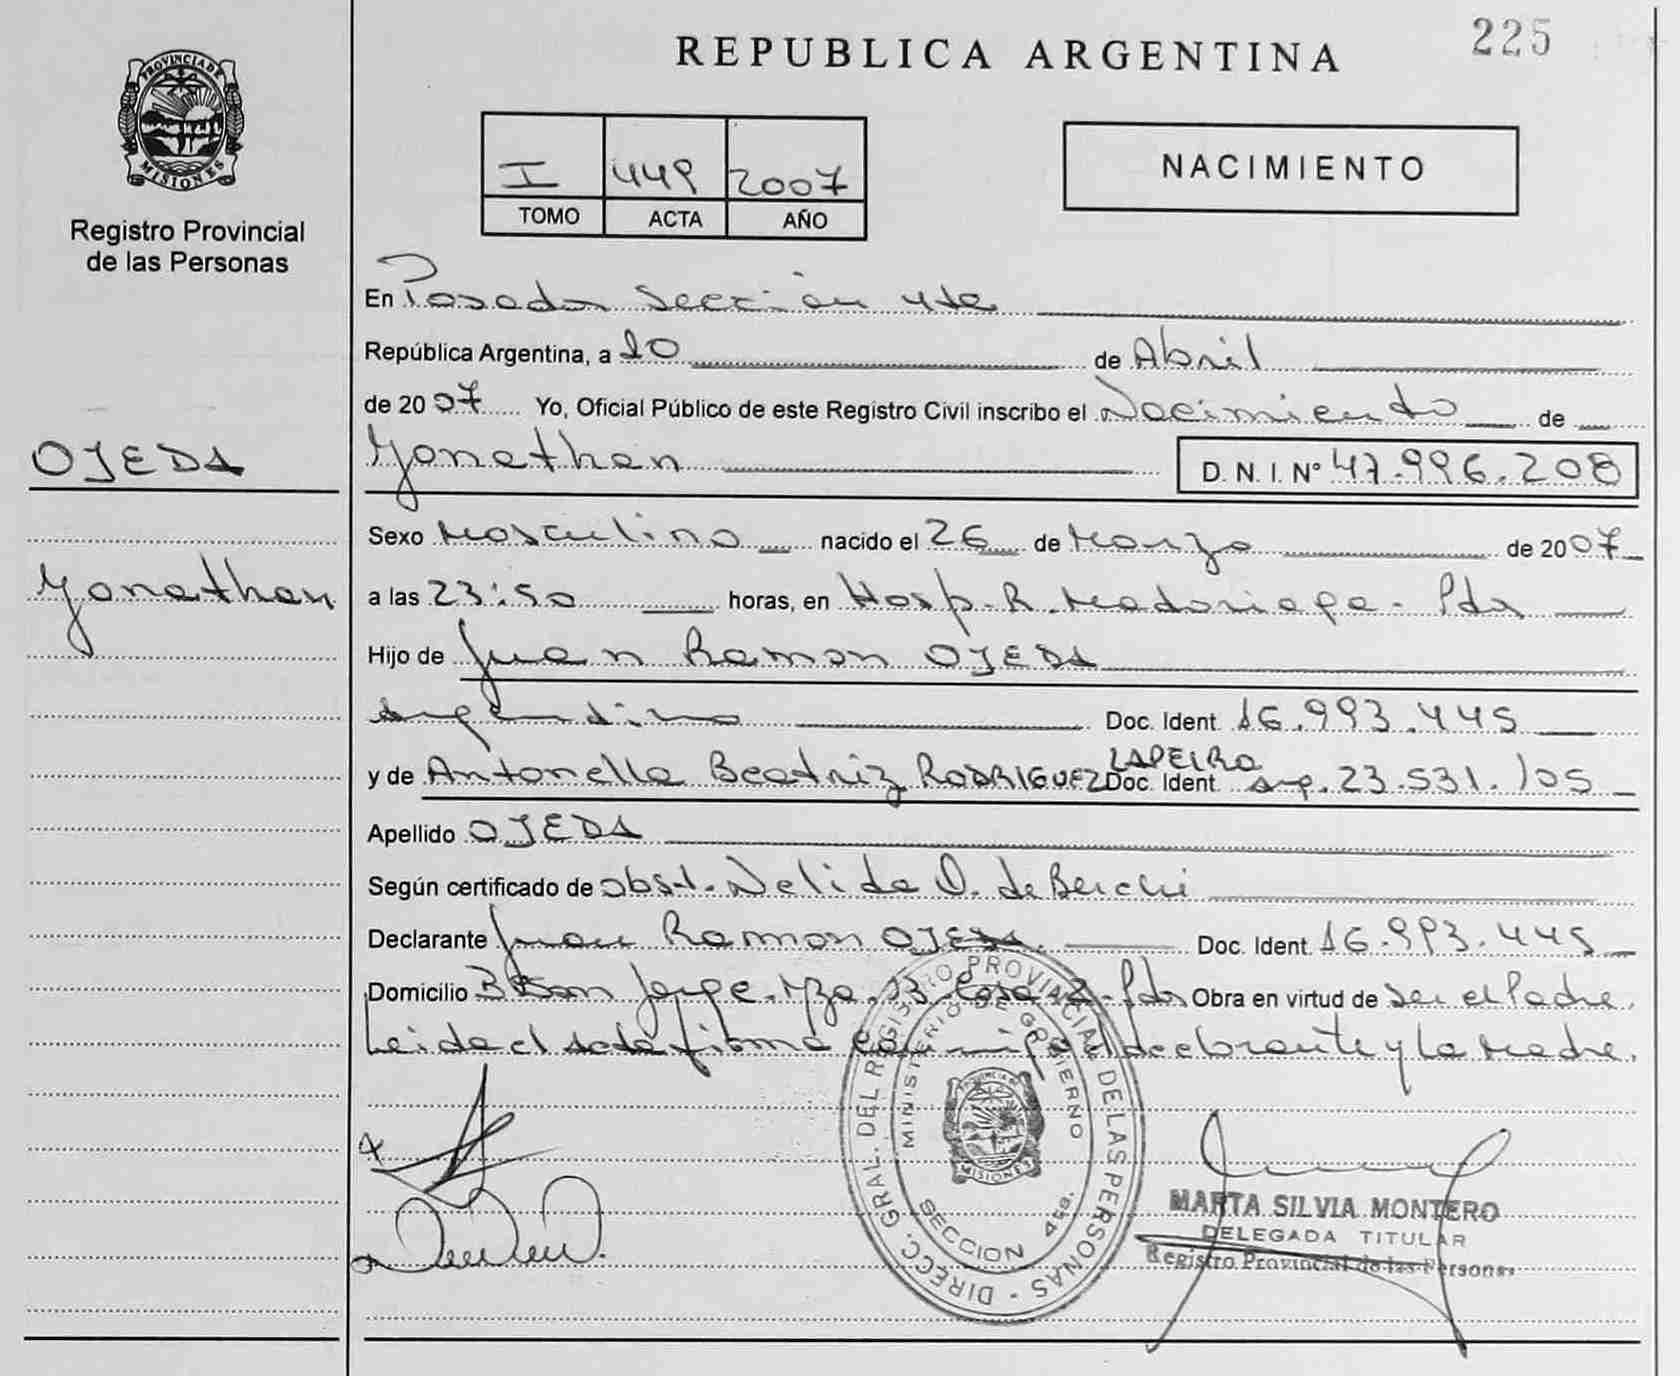 225
REPUBLICA ARGENTINA
PROVINCIA DE
MISIONES
Registro Provincial
de las Personas
I 449 2007
TOMO ACTA AÑO
NACIMIENTO
En Posadas Sección 4ta
República Argentina, a 10 de Abril
de 2007 Yo, Oficial Público de este Registro Civil inscribo el Nacimiento de
OJEDA
Yonathan D.N.I. Nº 47.996.208
Sexo Masculino nacido el 26 de Marzo de 2007
Yonathan
a las 23:50 horas, en Hosp. R. Madariaga - Pdas
Hijo de Juan Ramon OJEDA
argentino Doc. Ident. 16.993.445
y de Antonella Beatriz RODRIGUEZ LAPEIRA Doc. Ident. arg. 23.531.105
Apellido OJEDA
Según certificado de obst. Nelida O. de Berchi
Declarante Juan Ramon OJEDA Doc. Ident. 16.993.445
Domicilio Bº San Jorge. Mza. 13 Casa 2 - Pdas Obra en virtud de Ser el Padre.
Leida el acta firma conmigo el declarante y la Madre.
DIRECC. GRAL. DEL REGISTRO PROVINCIAL DE LAS PERSONAS
MINISTERIO DE GOBIERNO
PROVINCIA DE
MISIONES
SECCION 4ta.
MARTA SILVIA MONTERO
DELEGADA TITULAR
Registro Provincial de las Personas